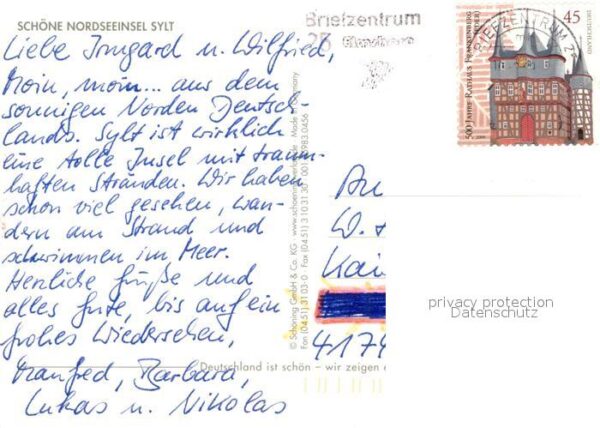 SCHÖNE NORDSEEINSEL SYLT
Liebe Irmgard u. Wilfried,
Moin, moin... aus dem
sonnigen Norden Deutsch-
lands. Sylt ist wirklich
eine tolle Insel mit traum-
haften Stränden. Wir haben
schon viel gesehen, wan-
dern am Strand und
schwimmen im Meer.
Herzliche Grüße und
alles Gute, bis auf ein
frohes Wiedersehen,
Manfred, Barbara,
Lukas u. Nikolas
© Schöning GmbH & Co. KG · www.schoening-verlag.de · Made in Germany
Fax (04 51) 31 03-0 · Fax (04 51) 3 10 31 30 · 001 0983 0456
Deutschland ist schön – wir zeigen
Briefzentrum
BRIEFZENTRUM 2
500 JAHRE RATHAUS FRANKENBERG
(EDER)
45
DEUTSCHLAND
An
W. +
Kai
4174
privacy protection
Datenschutz